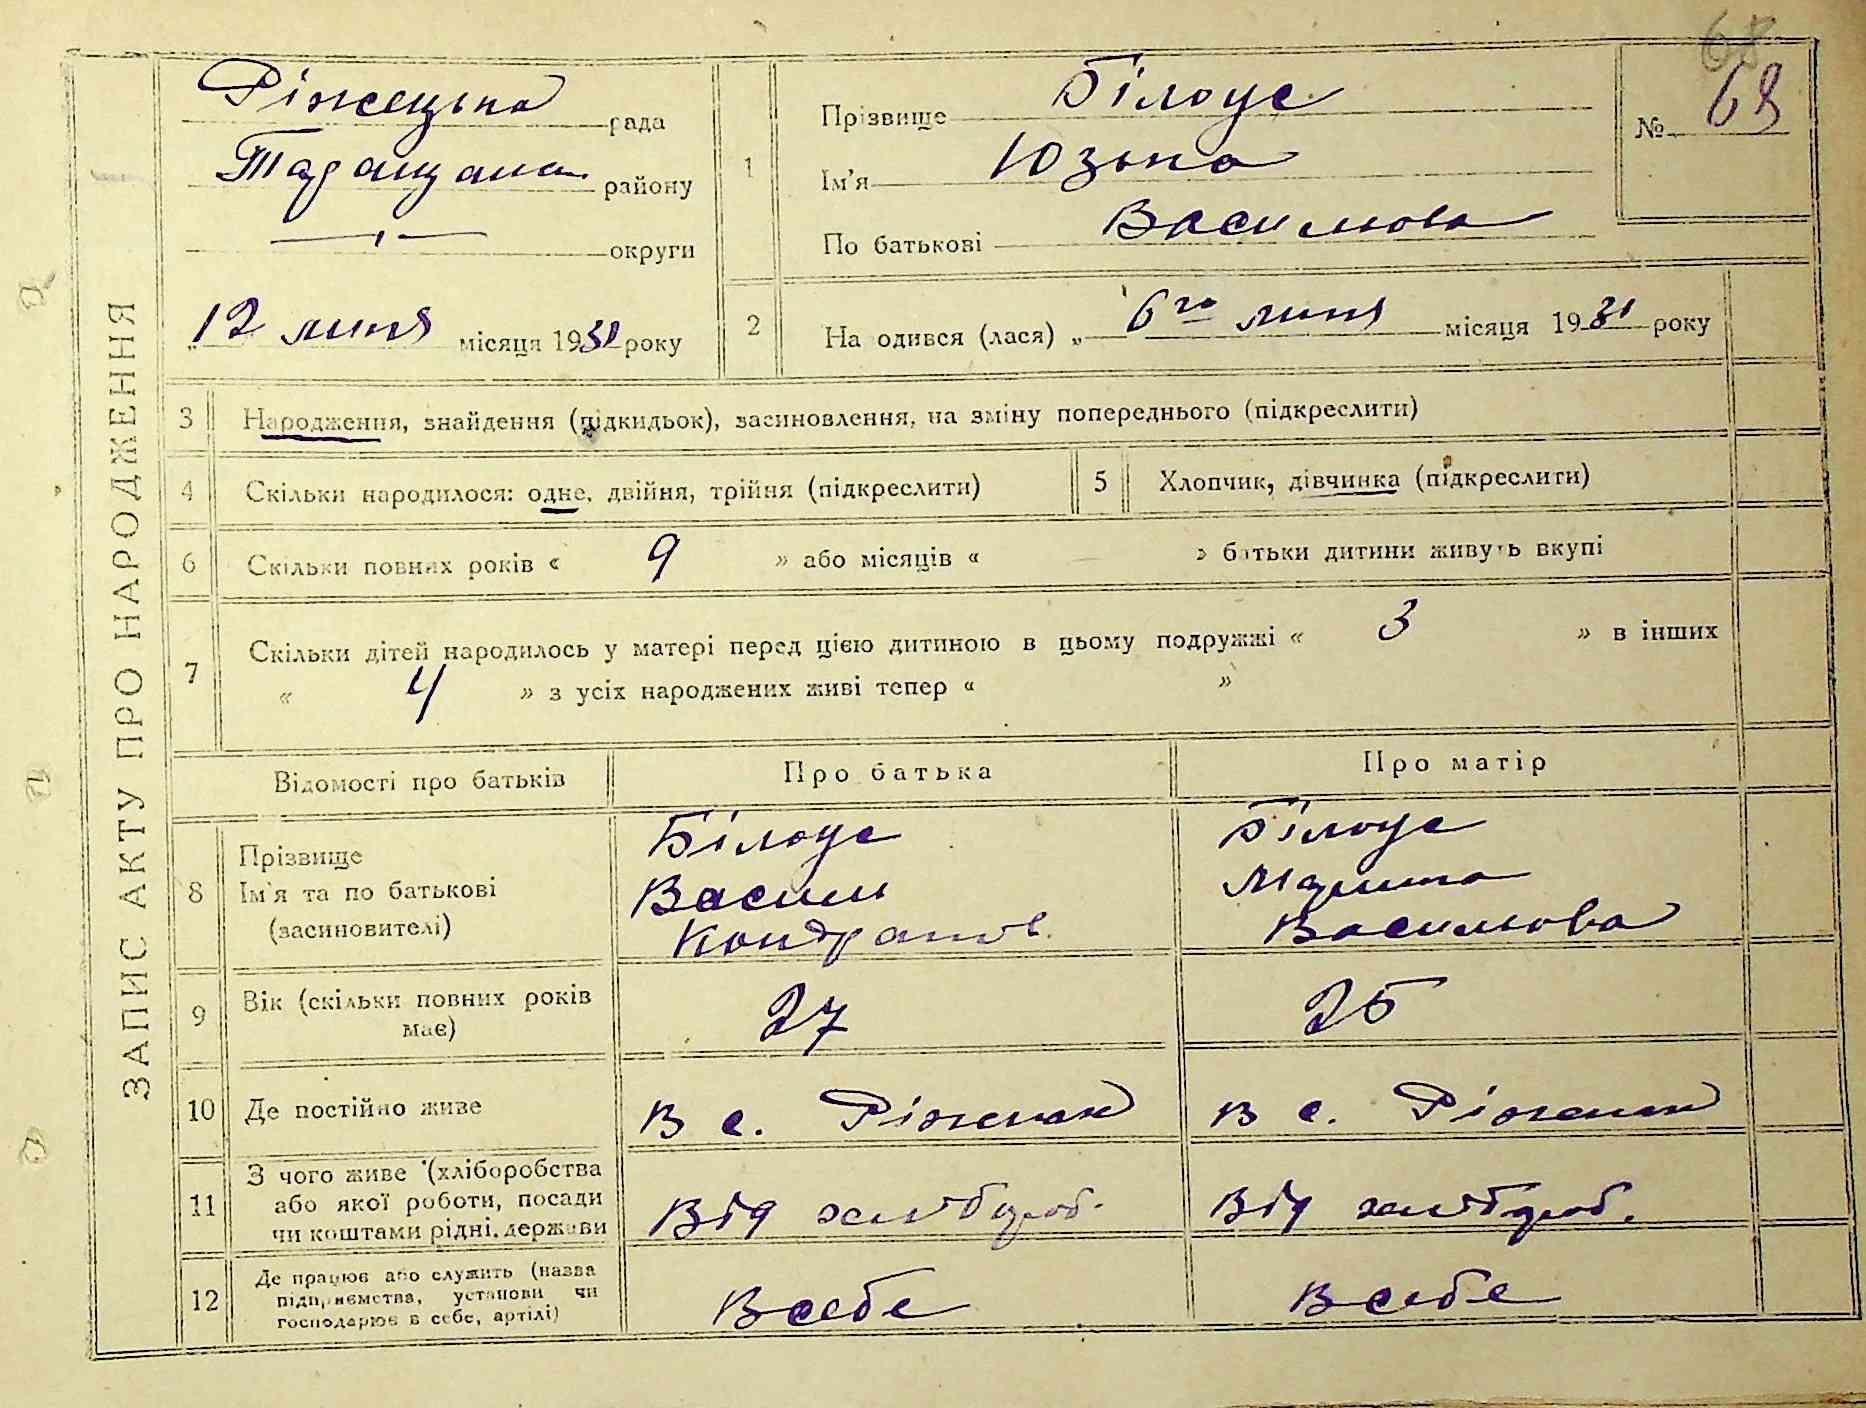 68
ЗАПИС АКТУ ПРО НАРОДЖЕННЯ
Ріжецька рада
Таращан. району
округи
„12 липня місяця 1931 року
1
Прізвище Білоус
Ім'я Юзька
По батькові Василова
№ 68
2
На одився (лася) „ 6го липня місяця 1931 року
3 Народження, знайдення (підкидьок), засиновлення, на зміну попереднього (підкреслити)
4 Скільки народилося: одне, двійня, трійня (підкреслити)
5 Хлопчик, дівчинка (підкреслити)
6 Скільки повних років « 9 » або місяців « — » батьки дитини живуть вкупі
7 Скільки дітей народилось у матері перед цією дитиною в цьому подружжі « 3 » в інших
« 4 » з усіх народжених живі тепер « »
Відомості про батьків Про батька Про матір
8
Прізвище Білоус Білоус
Ім'я та по батькові Василь
(засиновителі) Кондратов. Василова
9 Вік (скільки повних років має) 27 25
10 Де постійно живе в с. Ріжках в с. Ріжках
11 З чого живе (хліборобства
або якої роботи, посади
чи коштами рідні, держави Від хлібороб. Від хлібороб.
12 Де працює або служить (назва
підприємства, установи чи
господарює в себе, артілі) В себе В себе